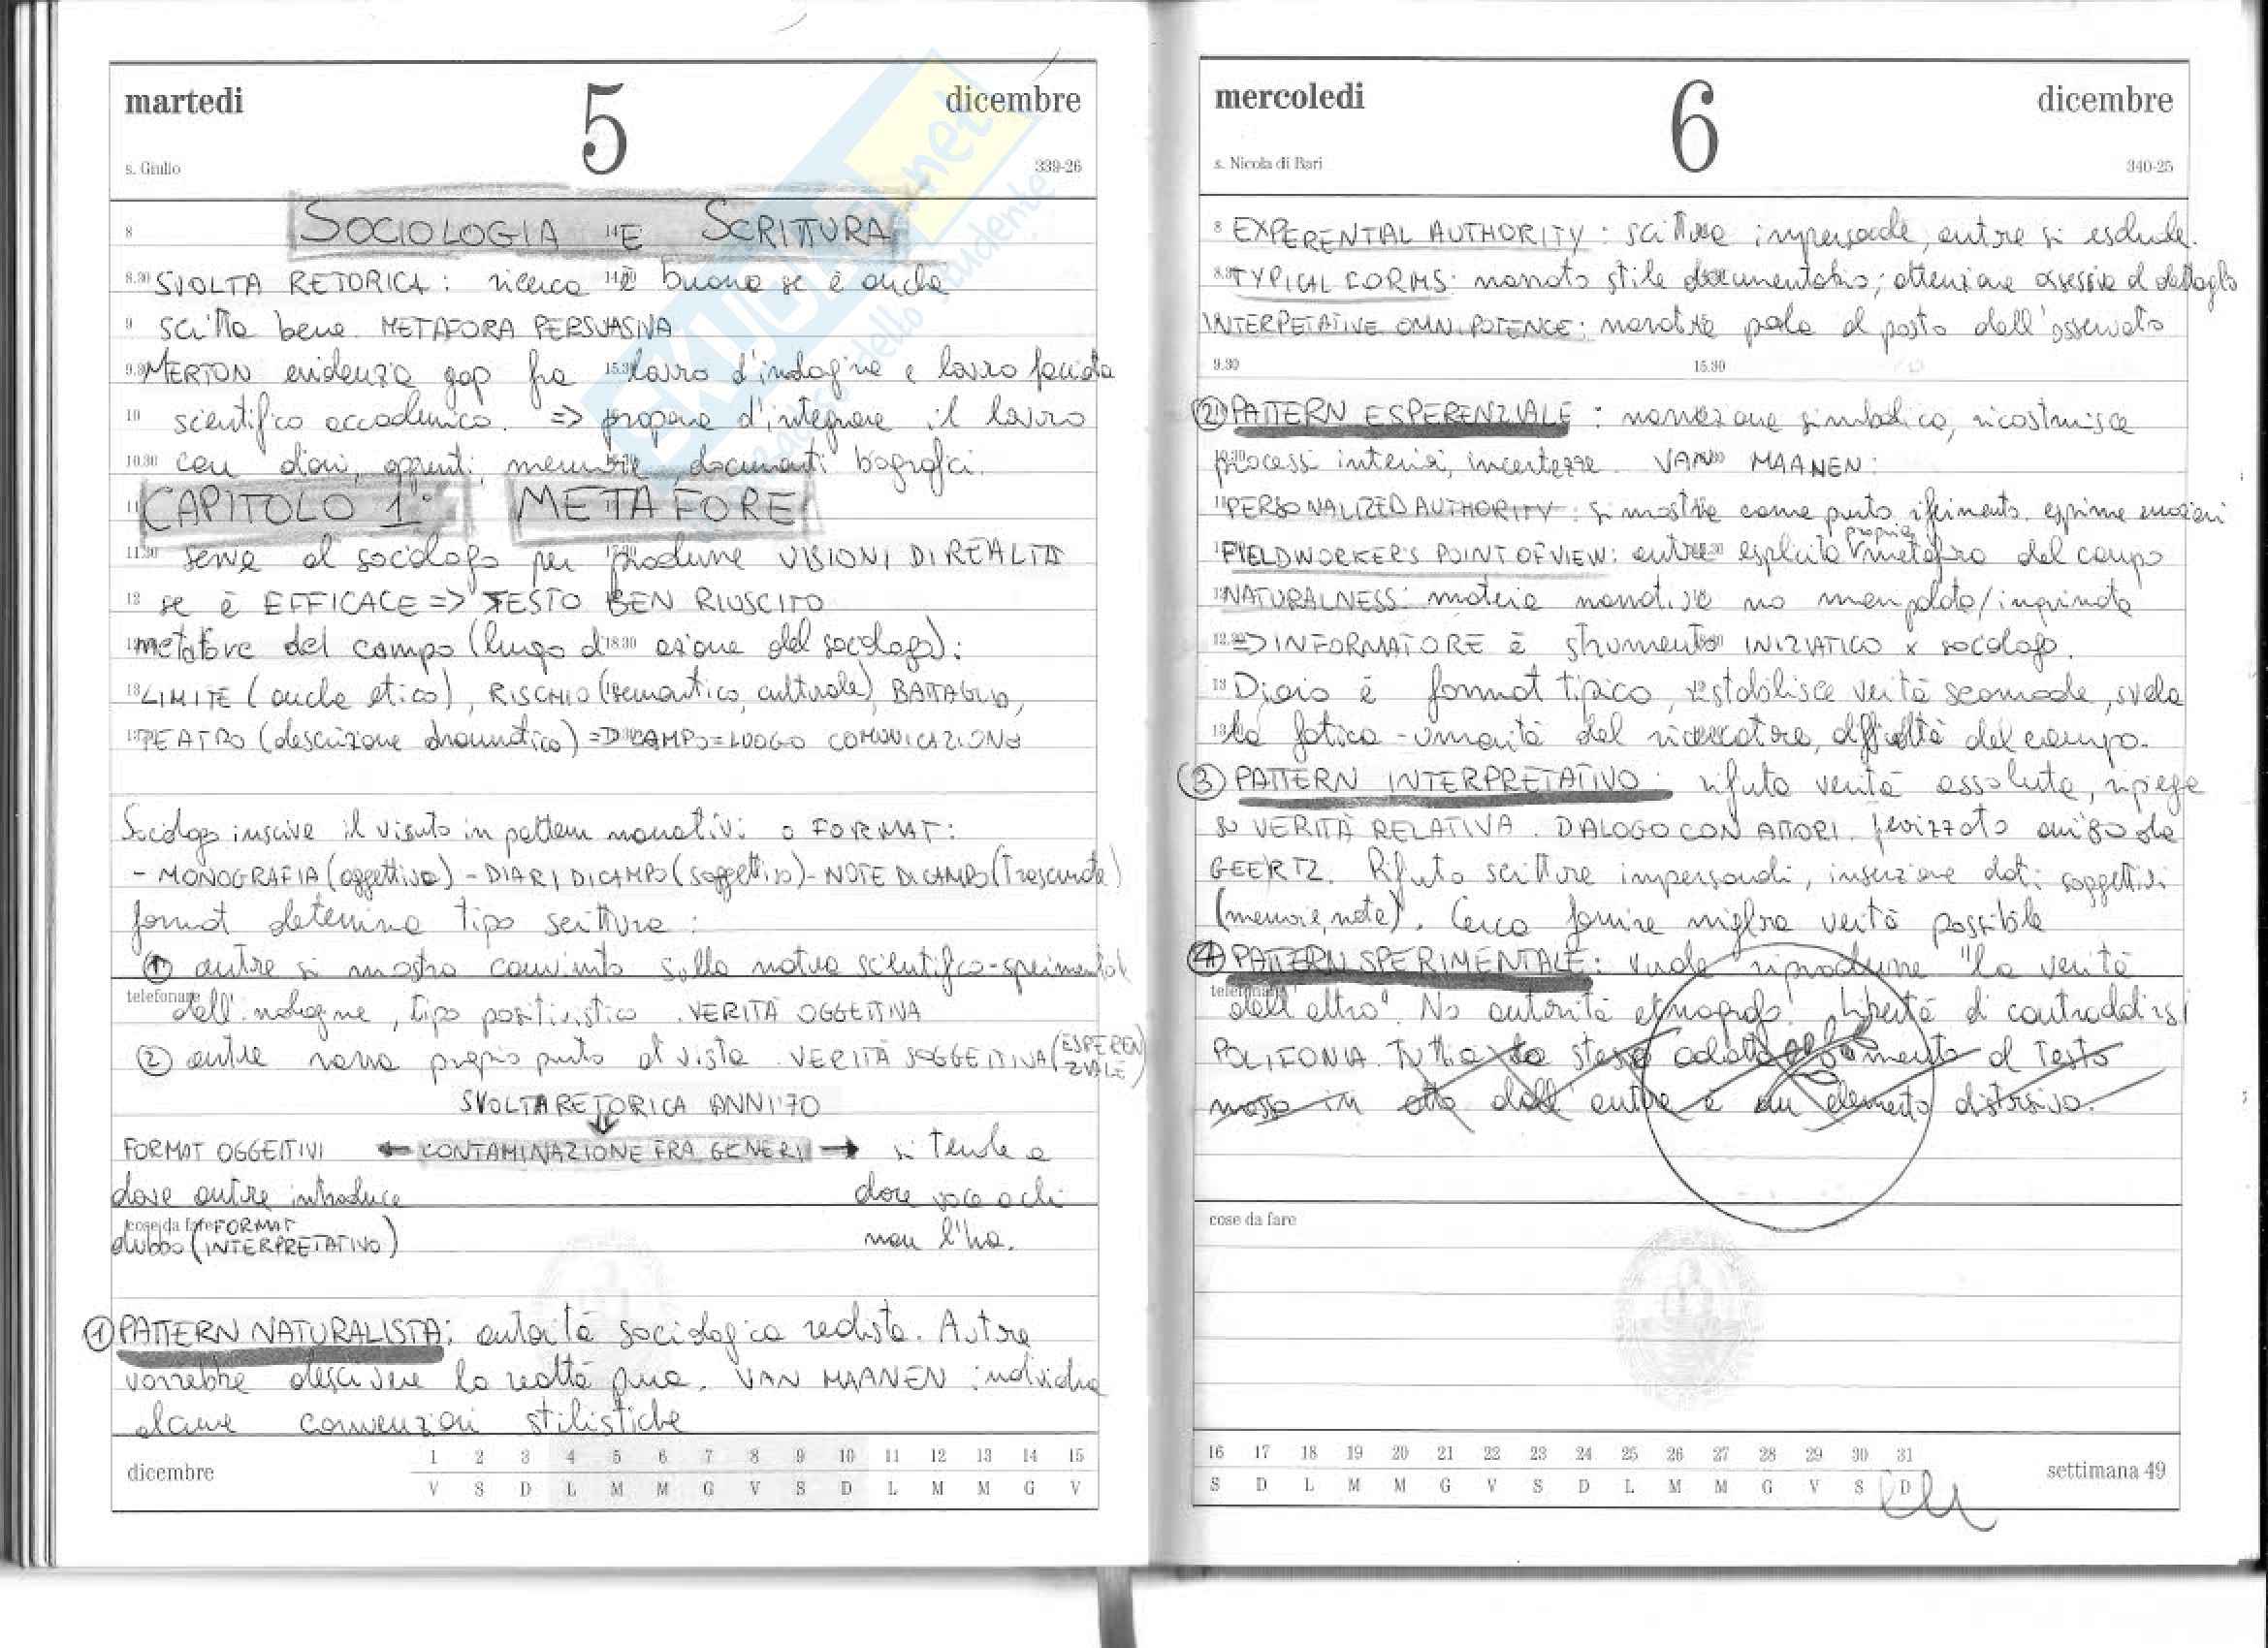 martedì 5 dicembre
s. Giulio 339-26
SOCIOLOGIA E SCRITTURA
SVOLTA RETORICA: ricerca è buona se è anche
scritta bene. METAFORA PERSUASIVA
MERTON evidenzia gap fra lavoro d'indagine e lavoro facciata
scientifico accademico. => propone d'integrare il lavoro
con diari, appunti, memorie, documenti biografici.
CAPITOLO 1° METAFORE
serve al sociologo per produrre VISIONI DI REALTÀ
se è EFFICACE => TESTO BEN RIUSCITO
metafore del campo (luogo d'azione del sociologo):
LIMITE (anche etico), RISCHIO (semantico, culturale), BATTAGLIA,
TEATRO (descrizione drammatica) => CAMPO = LUOGO COMUNICAZIONE
Sociologo inscrive il vissuto in pattern narrativi o FORMAT:
- MONOGRAFIA (oggettiva) - DIARI DI CAMPO (soggettivo) - NOTE DI CAMPO (Trascurate)
format determina tipo scrittura:
① autore si mostra convinto sulla natura scientifico-sperimental
telefonare
dell'indagine, tipo positivistico. VERITÀ OGGETTIVA
② autore narra proprio punto di vista. VERITÀ SOGGETTIVA (ESPERENZIALE)
SVOLTA RETORICA ANNI '70
FORMAT OGGETTIVI ← CONTAMINAZIONE FRA GENERI → si tende a
dove autore introduce dare voce a chi
cose da fare
dubbo (FORMAT INTERPRETATIVO) non l'ha.
① PATTERN NATURALISTA: autorità sociologica realista. Autore
vorrebbe descrivere la realtà pura. VAN MAANEN individua
alcune convenzioni stilistiche
dicembre 1 2 3 4 5 6 7 8 9 10 11 12 13 14 15
V S D L M M G V S D L M M G V
mercoledì 6 dicembre
s. Nicola di Bari 340-25
EXPERENTIAL AUTHORITY: scrittura impersonale, autore si esclude.
TYPICAL FORMS: narrato stile documentario; attenzione ossessiva al dettaglio
INTERPETATIVE OMNIPOTENCE: narratore parla al posto dell'osservato
② PATTERN ESPERENZIALE: narrazione simbolica, ricostruisce
processi interiori, incertezze. VAN MAANEN:
PERSONALIZED AUTHORITY: si mostra come punto riferimento. esprime emozioni
FIELDWORKER'S POINT OF VIEW: autore esplicita propria metafora del campo
NATURALNESS: materia narrativa no manipolata/inquinata
=> INFORMATORE È strumento INIZIATICO x sociologo.
Diario è format tipico, ristabilisce verità scomode, svela
la fatica - umanità del ricercatore, difficoltà del campo.
③ PATTERN INTERPRETATIVO: rifiuta verità assoluta, ripiega
su VERITÀ RELATIVA. DIALOGO CON ATTORI.
GEERTZ. Rifiuto scritture impersonali, inserzione dati soggettivi
(memorie, note). Cerca fornire miglior verità possibile
④ PATTERN SPERIMENTALE: vuole riprodurre "la verità
telefonare
dell'altro". No autorità etnografo. Libertà di contraddirsi
POLIFONIA. Tuttavia lo stesso adattamento al Testo
messo in atto dall'autore è un elemento distorsivo.
cose da fare
16 17 18 19 20 21 22 23 24 25 26 27 28 29 30 31
S D L M M G V S D L M M G V S D
settimana 49